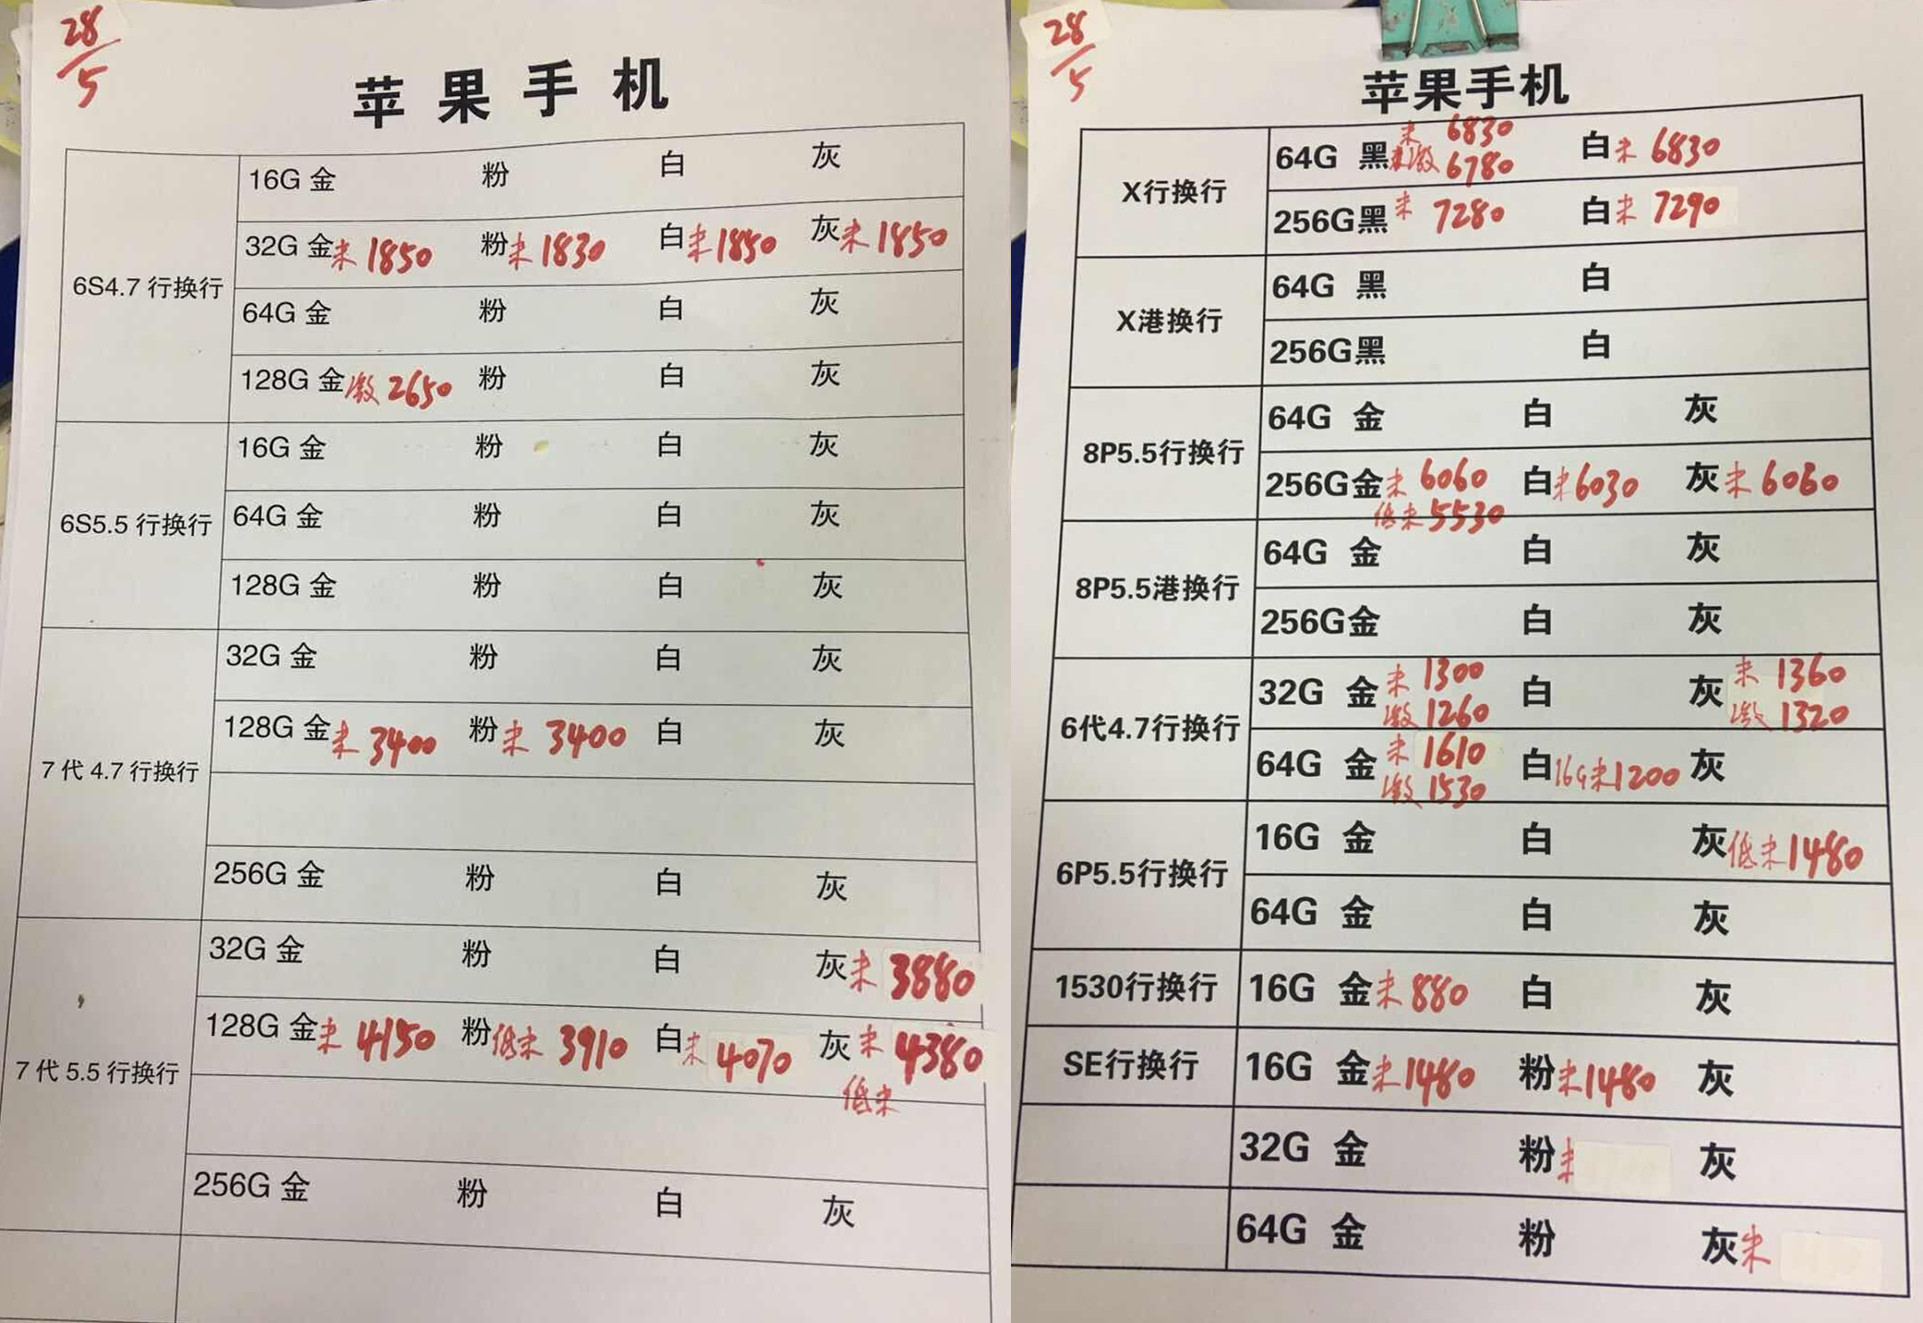 28/5
苹果手机
6S4.7 行换行
16G 金 粉 白 灰
32G 金 未 1850 粉 未 1830 白 未 1850 灰 未 1850
64G 金 粉 白 灰
128G 金 激 2650 粉 白 灰
6S5.5 行换行
16G 金 粉 白 灰
64G 金 粉 白 灰
128G 金 粉 白 灰
7 代 4.7 行换行
32G 金 粉 白 灰
128G 金 未 3400 粉 未 3400 白 灰
256G 金 粉 白 灰
7 代 5.5 行换行
32G 金 粉 白 灰 未 3880
128G 金 未 4150 粉 低未 3910 白 未 4070 灰 未 4380
低未
256G 金 粉 白 灰
28/5
苹果手机
X行换行
64G 黑 未 6830 白 未 6830
未激 6780
256G黑 未 7280 白 未 7290
X港换行
64G 黑 白
256G黑 白
8P5.5行换行
64G 金 白 灰
256G金 未 6060 白 未 6030 灰 未 6060
低未 5530
8P5.5港换行
64G 金 白 灰
256G金 白 灰
6代4.7行换行
32G 金 未 1300 白 灰 未 1360
激 1260 激 1320
64G 金 未 1610 白 16G未1200 灰
激 1530
6P5.5行换行
16G 金 白 灰 低未 1480
64G 金 白 灰
1530行换行
16G 金 未 880 白 灰
SE行换行
16G 金 未 1480 粉 未 1480 灰
32G 金 粉 未 灰
64G 金 粉 灰 未